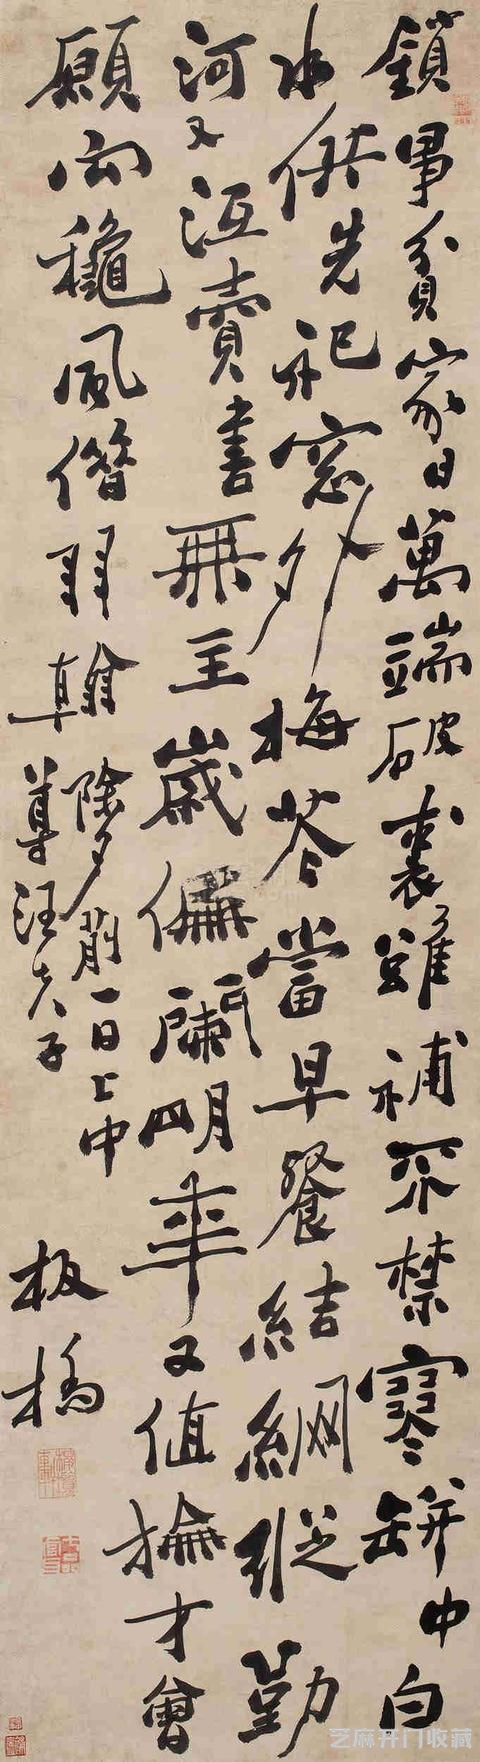 鎖事貧家日萬端破裘雖補不禁寒缾中白
水供先祀窓外梅花當早餐結網縱勤
河又沍賣書無主歲偏闌明年又值掄才會
願向龝風借羽翰
除夕前一日上中
尊汪夫子
板橋
芝麻开门收藏